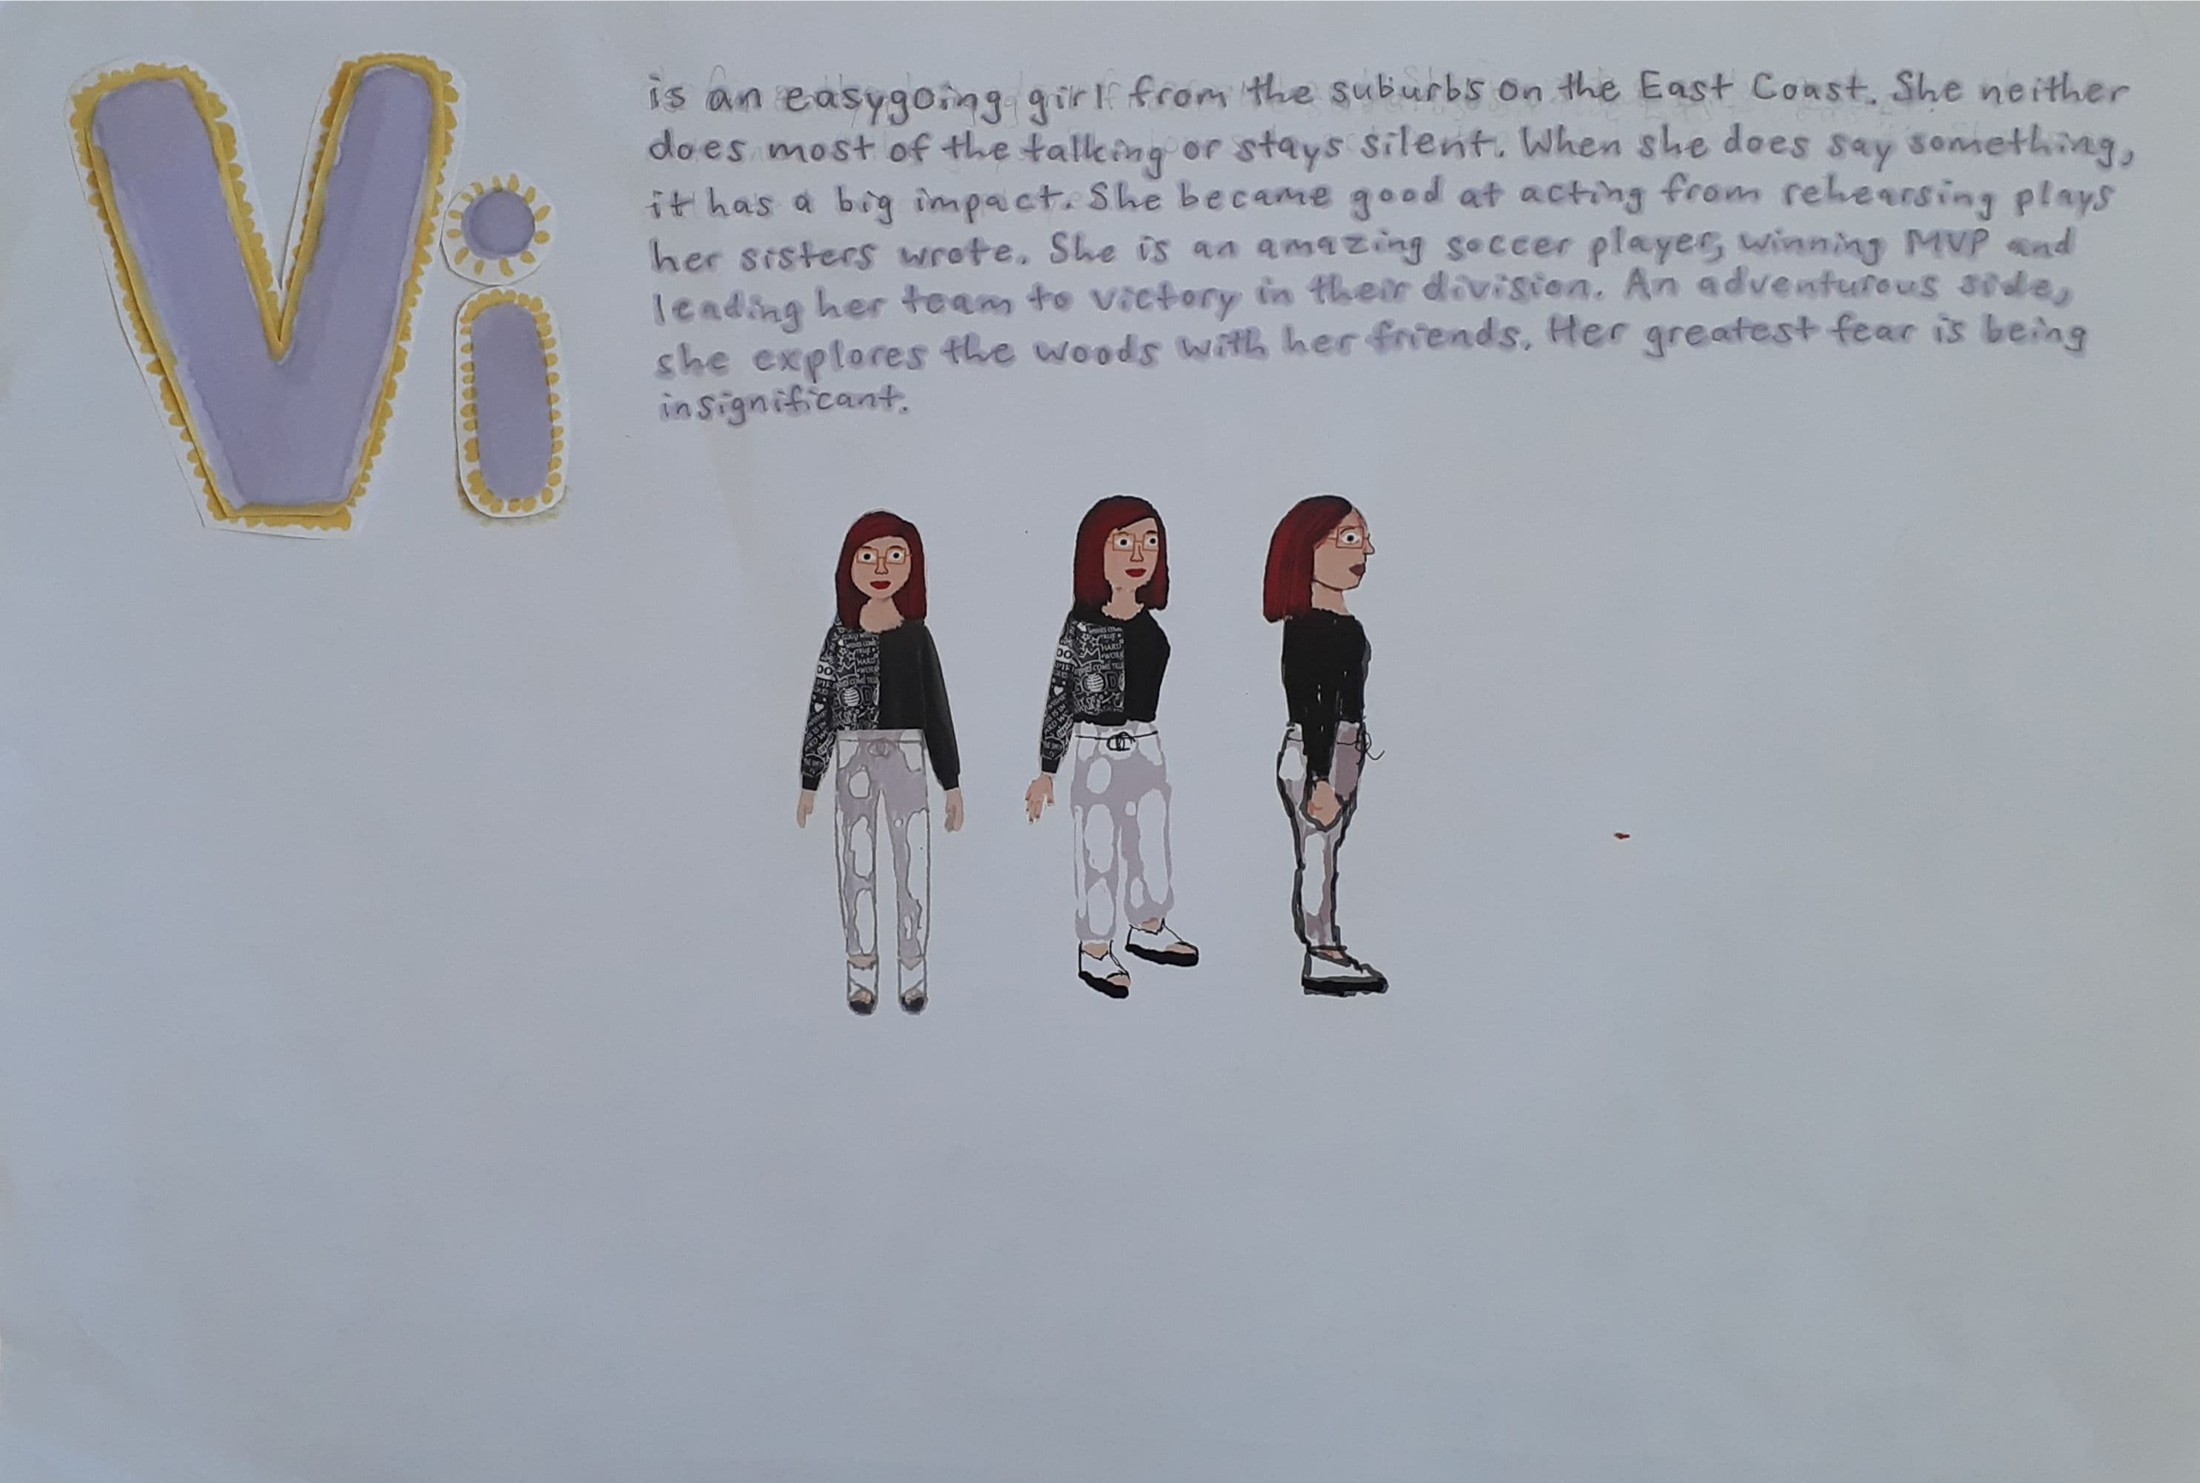 Vi
is an easygoing girl from the suburbs on the East Coast. She neither
does most of the talking or stays silent. When she does say something,
it has a big impact. She became good at acting from rehearsing plays
her sisters wrote. She is an amazing soccer player, winning MVP and
leading her team to victory in their division. An adventurous side,
she explores the woods with her friends. Her greatest fear is being
insignificant.